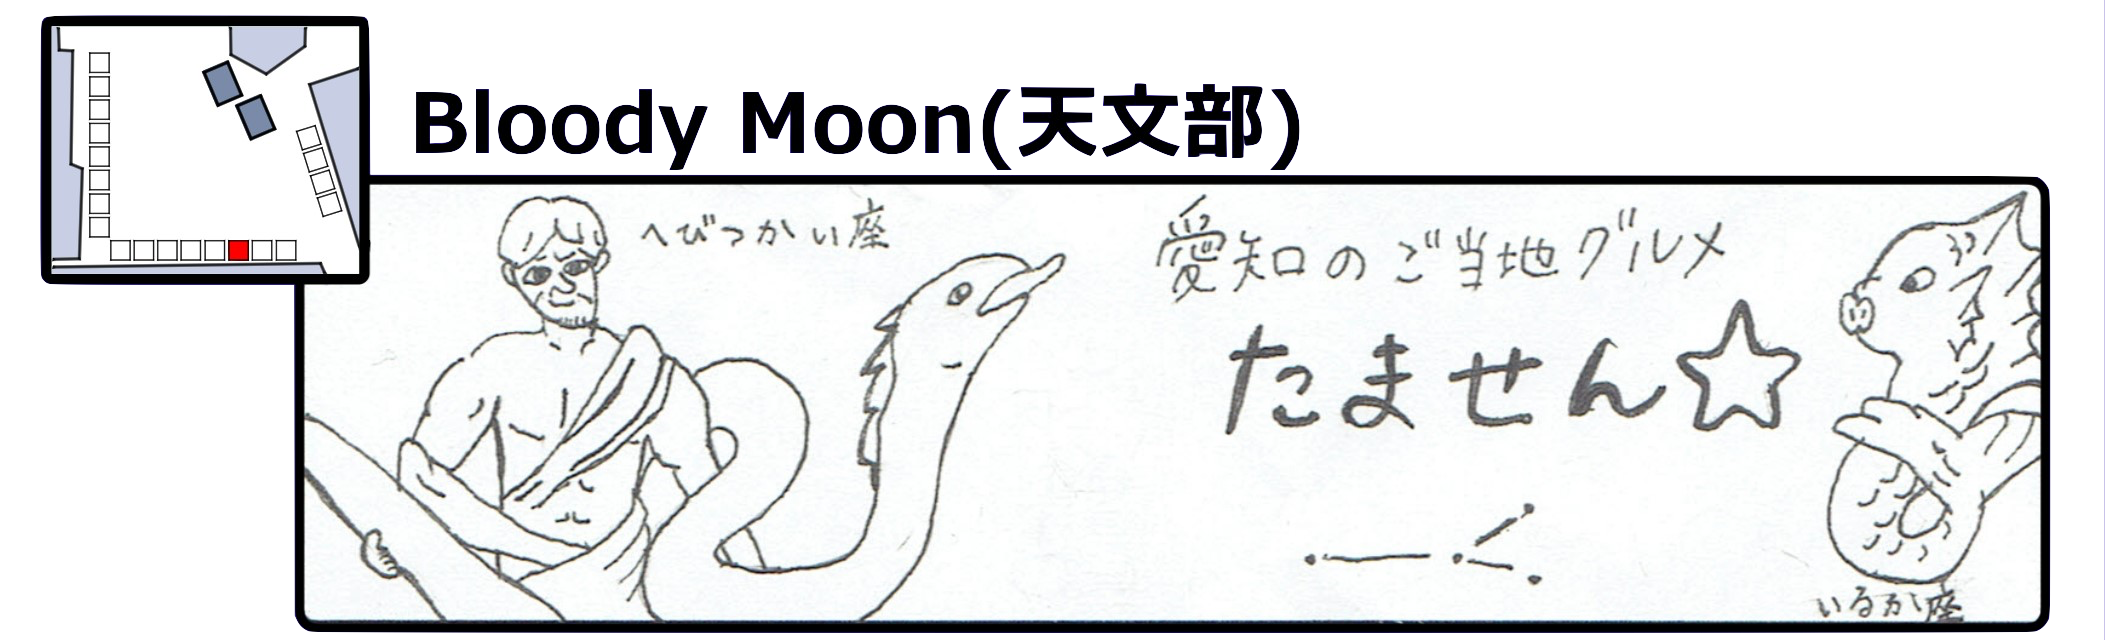 Bloody Moon(天文部)
へびつかい座
愛知のご当地グルメ
たません☆
いるか座